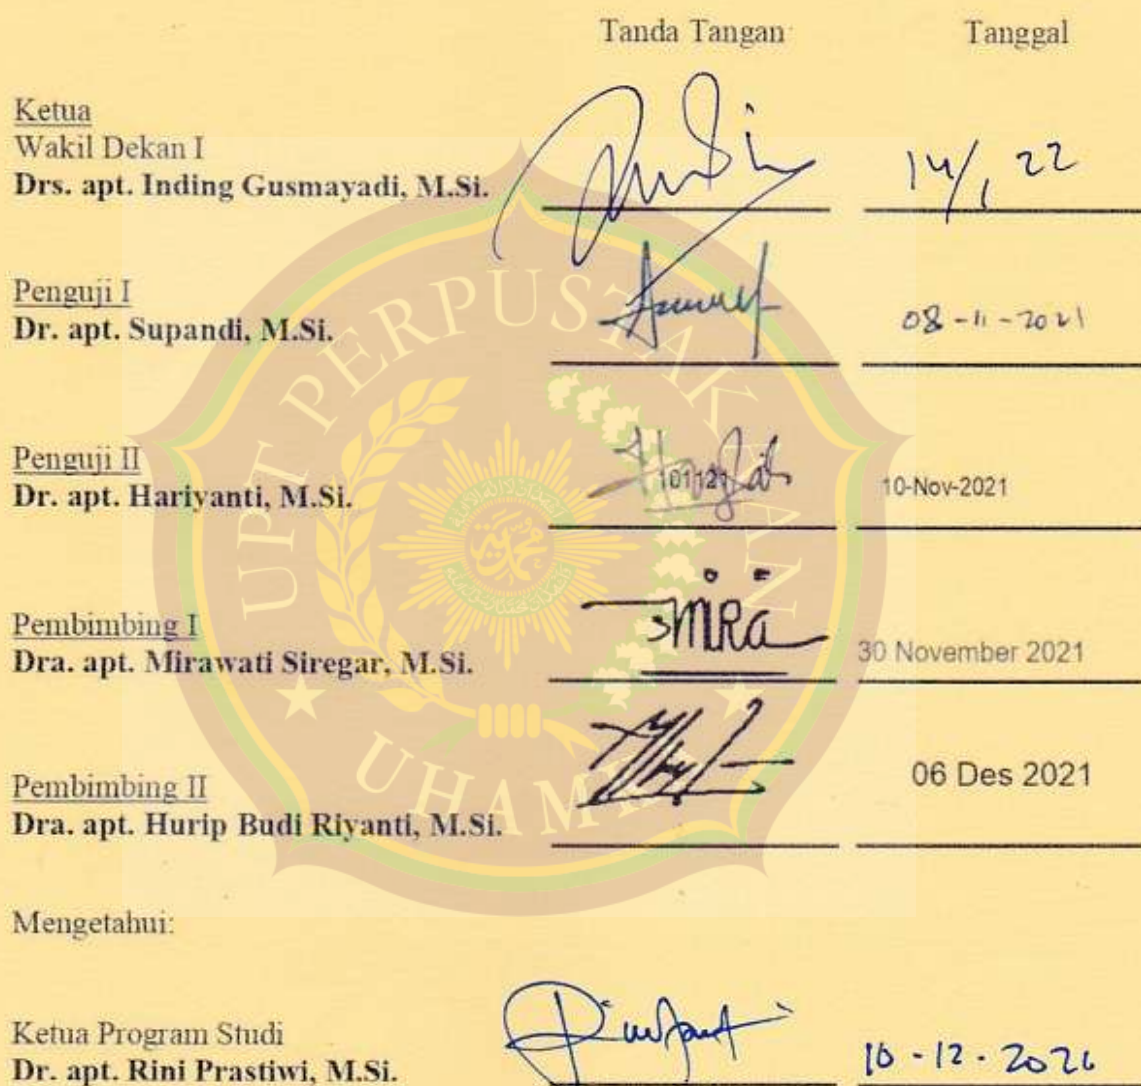 Tanda Tangan Tanggal
Ketua
Wakil Dekan I
Drs. apt. Inding Gusmayadi, M.Si. 14/1 22
Penguji I
Dr. apt. Supandi, M.Si. 08-11-2021
Penguji II
Dr. apt. Hariyanti, M.Si. 101121 10-Nov-2021
Pembimbing I
Dra. apt. Mirawati Siregar, M.Si. 30 November 2021
Pembimbing II
Dra. apt. Hurip Budi Riyanti, M.Si. 06 Des 2021
Mengetahui:
Ketua Program Studi
Dr. apt. Rini Prastiwi, M.Si. 10-12-2021
UPT PERPUSTAKAAN
UHAMKA